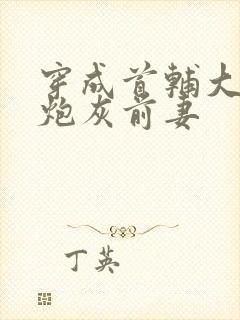 穿成首辅大
炮灰前妻
丁英